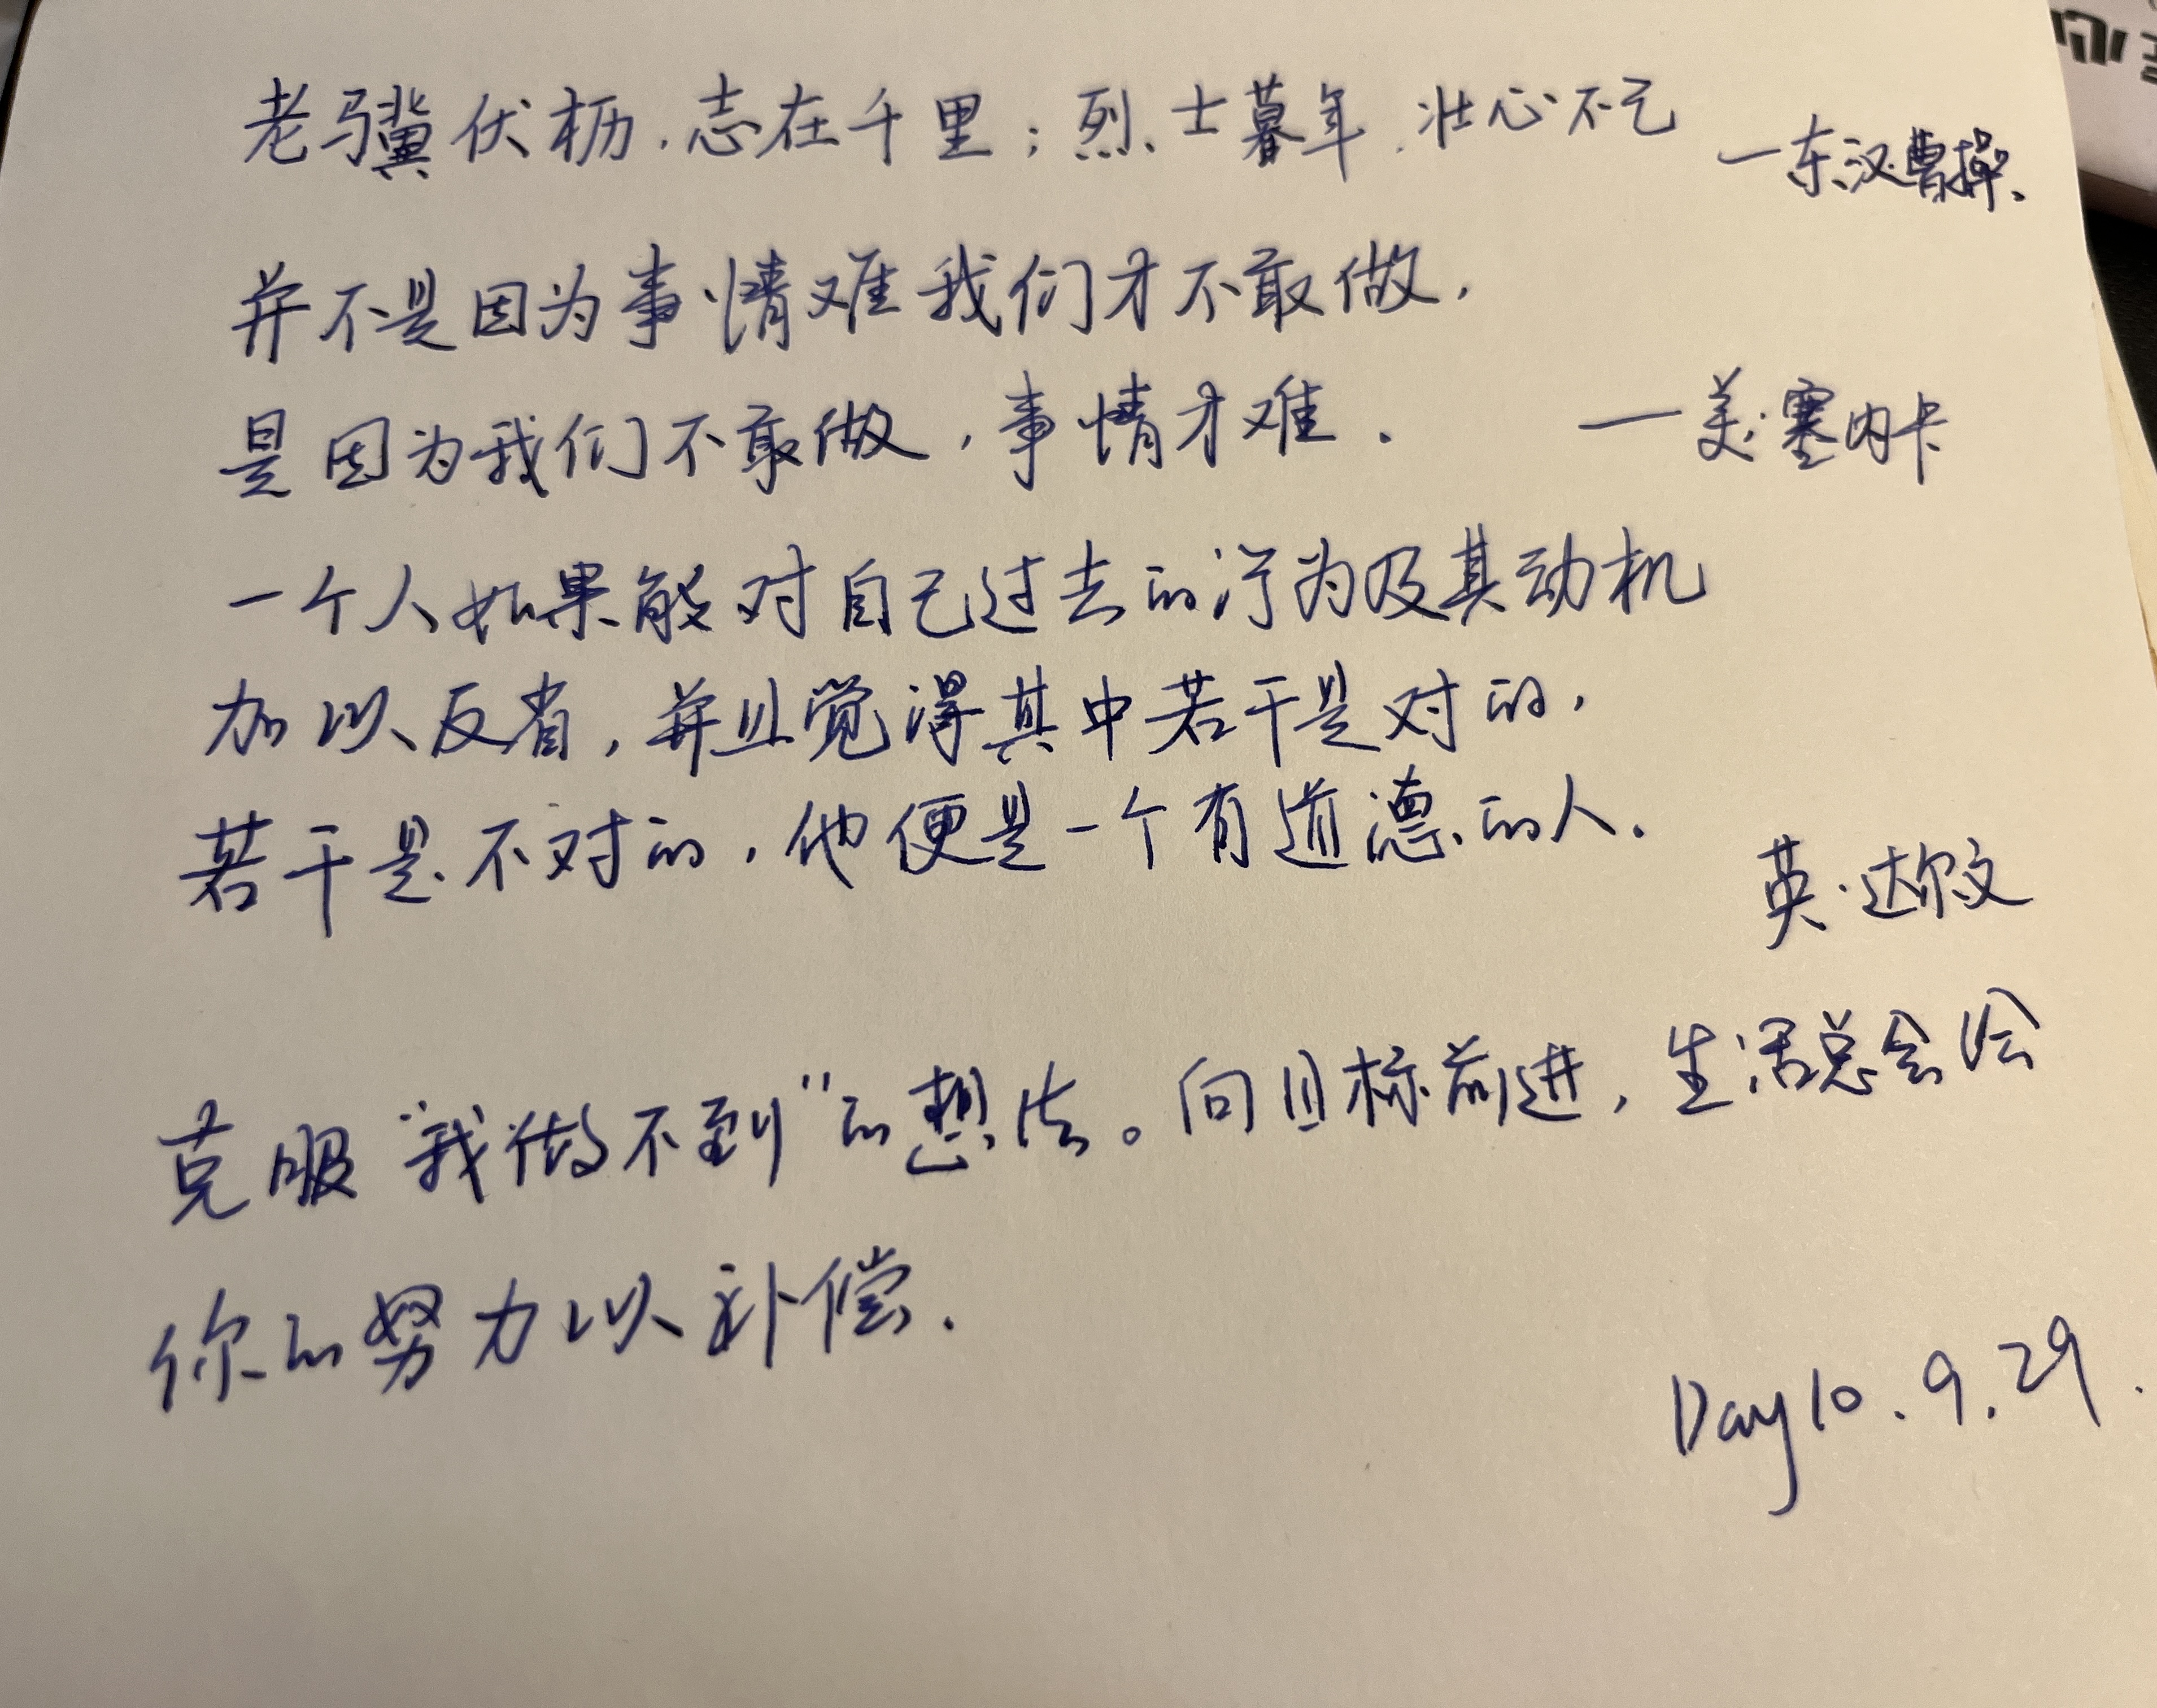 老骥伏枥.志在千里;烈士暮年.壮心不已
一东汉曹操.
并不是因为事情难我们才不敢做,
是因为我们不敢做,事情才难.
一美.塞内卡
一个人如果能对自己过去的行为及其动机
加以反省,并且觉得其中若干是对的,
若干是不对的,他便是一个有道德的人.
英.达尔文
克服“我做不到”的想法。向目标前进,生活总会给
你的努力以补偿.
Day10.9.29.